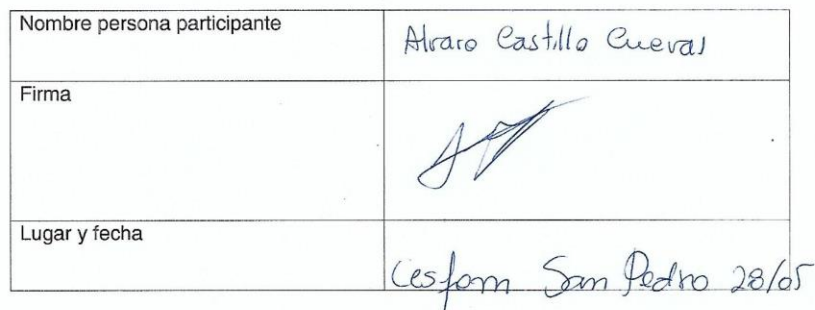 Nombre persona participante
Alvaro Castillo Cuevas
Firma
Lugar y fecha
Cesfam San Pedro 28/05